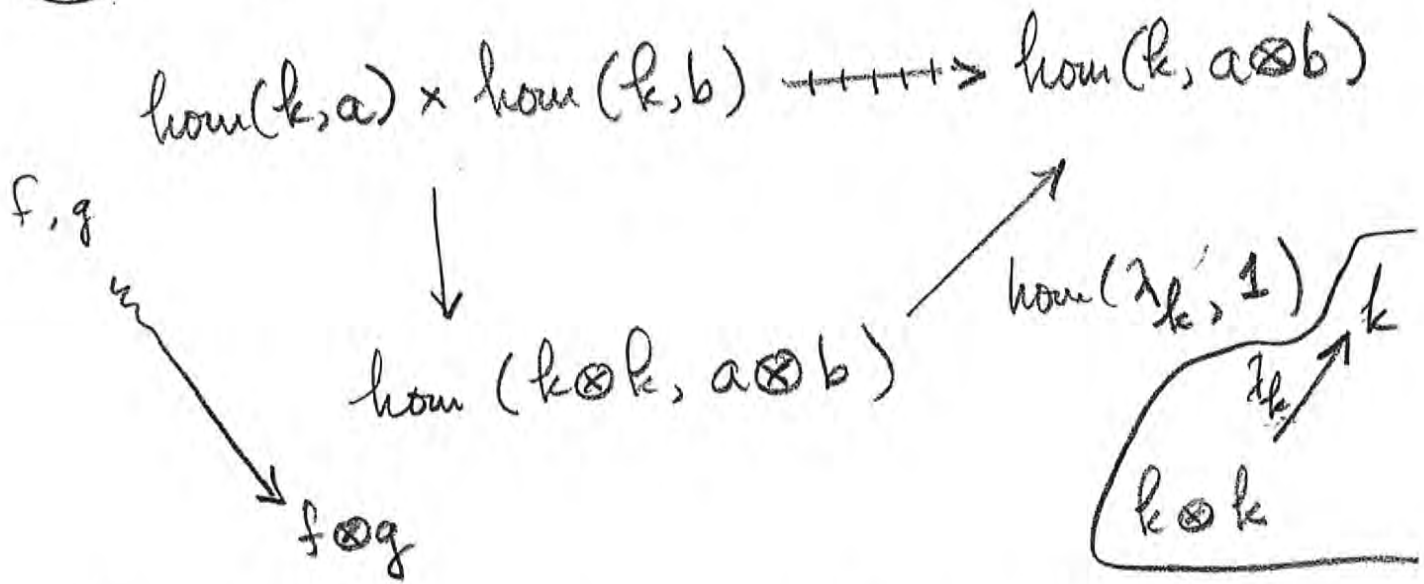 hom(k,a) × hom(k,b) → hom(k, a⊗b)
f, g
hom(λₖ, 1)
k
λₖ
hom (k⊗k, a⊗b)
k⊗k
f⊗g